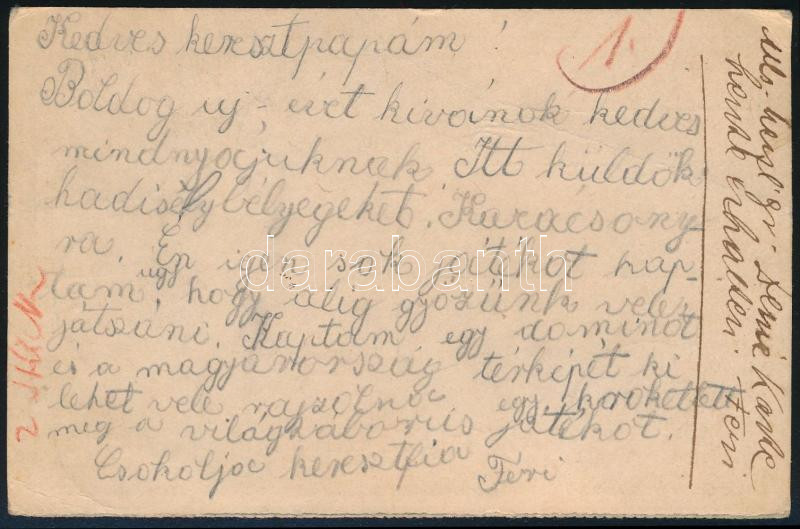 Kedves keresztpapám!
1.
Boldog uj-évet kivánok kedves
mindnyájuknak Itt küldök
hadisélybélyegeket. Karácsony-
ra. Én igen sok játékot kap-
tam, ugy hogy alig győzünk vele
játszani. Kaptam egy dominót
és a magyarország térképét ki
lehet vele rajzolni egy krokettet
meg a világháborús játékot.
Csokolja keresztfia
Feri
darabanth
heute erhalten. Feri